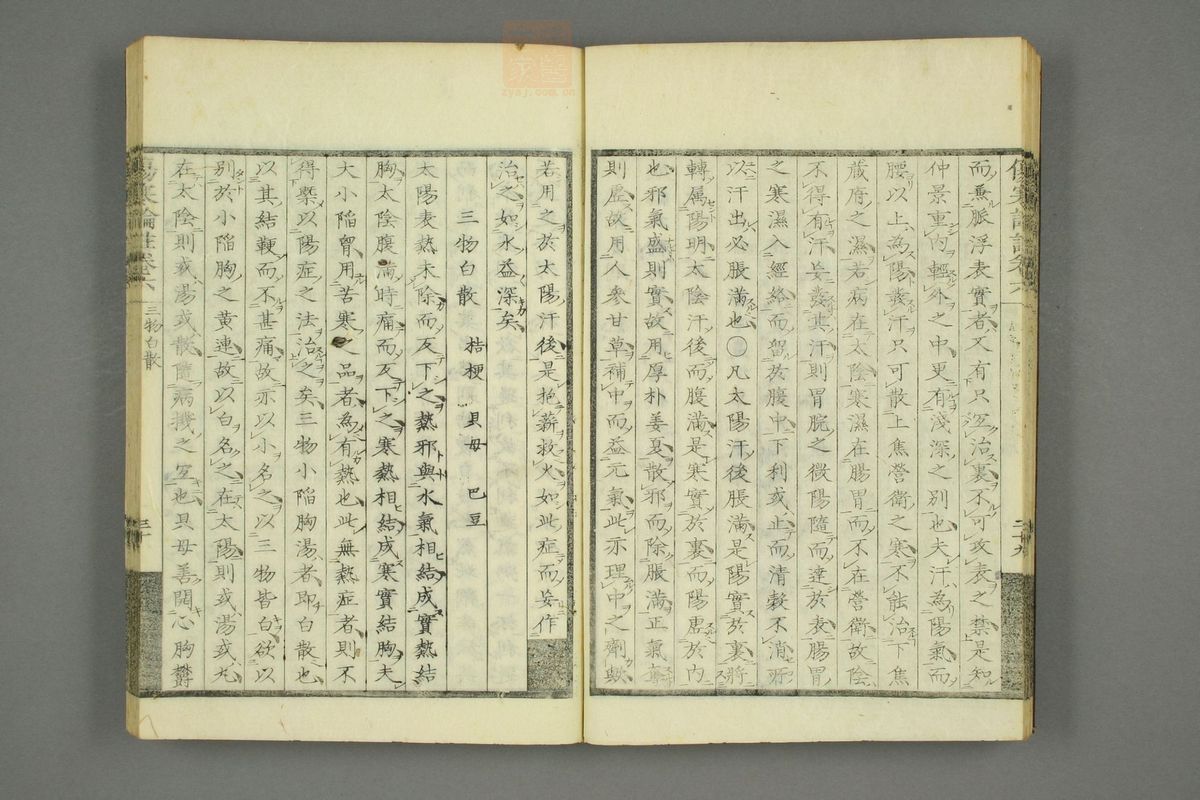 而兼脈浮表實者又有只宜治裏不可攻表之禁是知
仲景重內輕外之中更有淺深之別也夫汗為陽氣而
腰以上為陽發汗只可散上焦營衛之寒不能治下焦
藏府之濕若病在太陰寒濕在腸胃而不在營衛故陰
不得有汗妄發其汗則胃脘之微陽隨而達於表腸胃
之寒濕入經絡而留於腹中下利或止而清穀不消所
以汗出必脹滿也○凡太陽汗後脹滿是陽實於裏將
轉属陽明太陰汗後而腹滿是寒實於裏而陽虛於內
也邪氣盛則實故用厚朴姜夏散邪而除脹滿正氣奪
則虛故用人參甘草補中而益元氣此亦理中之劑歟
若用之於太陽汗後是抱薪救火如此症而妄作
治之如水益深矣
三物白散　桔梗　貝母　巴豆
太陽表熱未除而反下之熱邪與水氣相結成實熱結
胸太陰腹滿時痛而反下之寒熱相結成寒實結胸夫
大小陷胷用苦寒之品者為有熱也此無熱症者則不
得藥以陽症之法治之矣三物小陷胸湯者即白散也
以其結鞕而不甚痛故亦以小名之以三物皆白欲以
別於小陷胸之黄連故以白名之在太陽則或湯或丸
在太陰則或湯或散隨病機之宜也貝母善開心胸欝
傷寒論註卷六
三物白散
三十
二十九